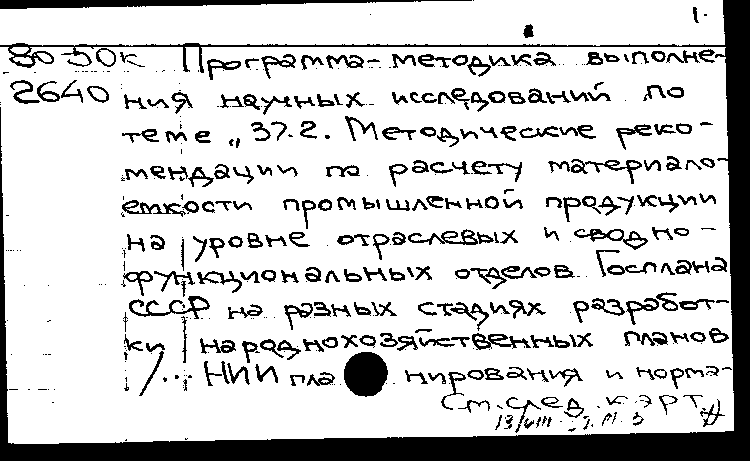 1.
80-50к Программа-методика выполне-
2640 ния научных исследований по
теме „37.2. Методические реко-
мендации по расчету материало-
емкости промышленной продукции
на уровне отраслевых и сводно-
функциональных отделов Госплана
СССР на разных стадиях разработ-
ки народнохозяйственных планов
/... НИИ планирования и норма-
См. след. карт.
13/VIII